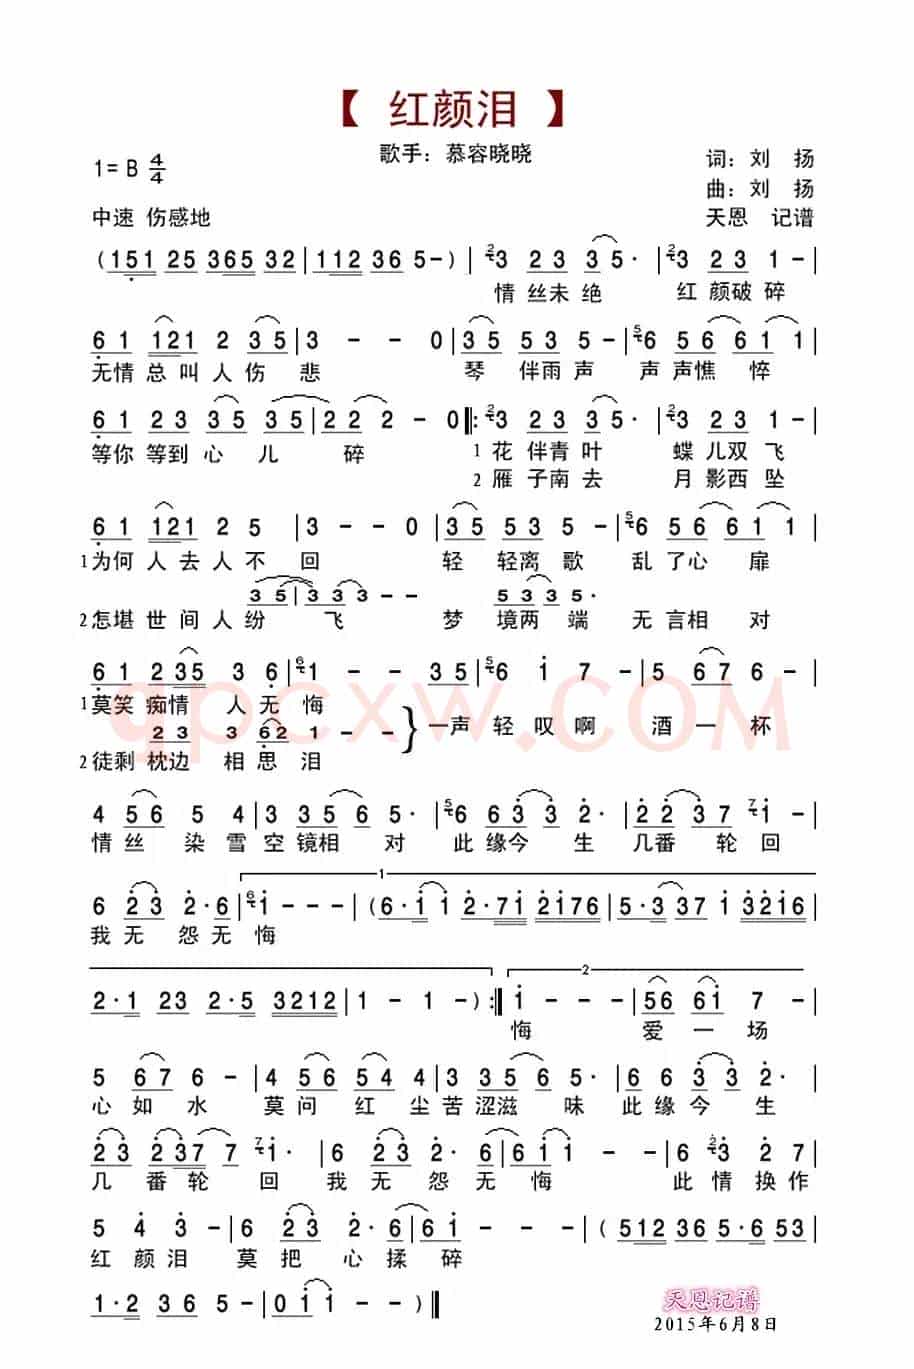 【 红颜泪 】
歌手：慕容晓晓
1= B 4/4
词：刘 扬
曲：刘 扬
中速 伤感地
天恩 记谱
(151 25 365 32|112 36 5-)|23 23 35·|23 23 1-|
情丝未绝 红颜破碎
61 121 2 35|3 - - 0|35 53 5-|56 56 61 1|
无情总叫人伤悲 琴伴雨声 声声憔悴
61 23 35 35|22 2 - 0‖:23 23 35·|23 23 1-|
等你等到心儿碎 1 花伴青叶 蝶儿双飞
2 雁子南去 月影西坠
61 121 2 5|3 - - 0|35 53 5-|56 56 61 1|
1为何人去人不回 轻轻离歌 乱了心扉
35|33 3 - - 53 35·
2怎堪世间人纷飞 梦境两端 无言相对
61 235 3 6|61 - - 35|56 i 7 -|5 67 6-|
1莫笑痴情人无悔
23 3 62 1 - -
}一声轻叹啊 酒一杯
2徒剩枕边相思泪
4 56 5 4|3 35 6 5·|56 63 3 2·|22 37 7i-|
情丝染雪空镜相对 此缘今生 几番轮回
6 23 2·6|6i - - -|(6·i i 2·7i 2176|5·3 37 i 3216|
1
我无怨无悔
2·1 23 2·5 3212|1 - 1 -):‖i - -|56 6i 7 -|
2
悔 爱一场
5 67 6 -|4 56 54|3 35 6 5·|66 33 2·|
心如水 莫问红尘苦涩滋味 此缘今生
23 237 7 7i·|6 23 2·6|6i i - -|6 23 2 7|
几番轮回 我无怨无悔 此情换作
5 4 3 -|6 23 2·6|6i - -|(512 36 5·6 53|
红颜泪 莫把心揉碎
1·2 36 5·6|01 1 -)‖
gpcxw.COM
天恩记谱
2015年6月8日